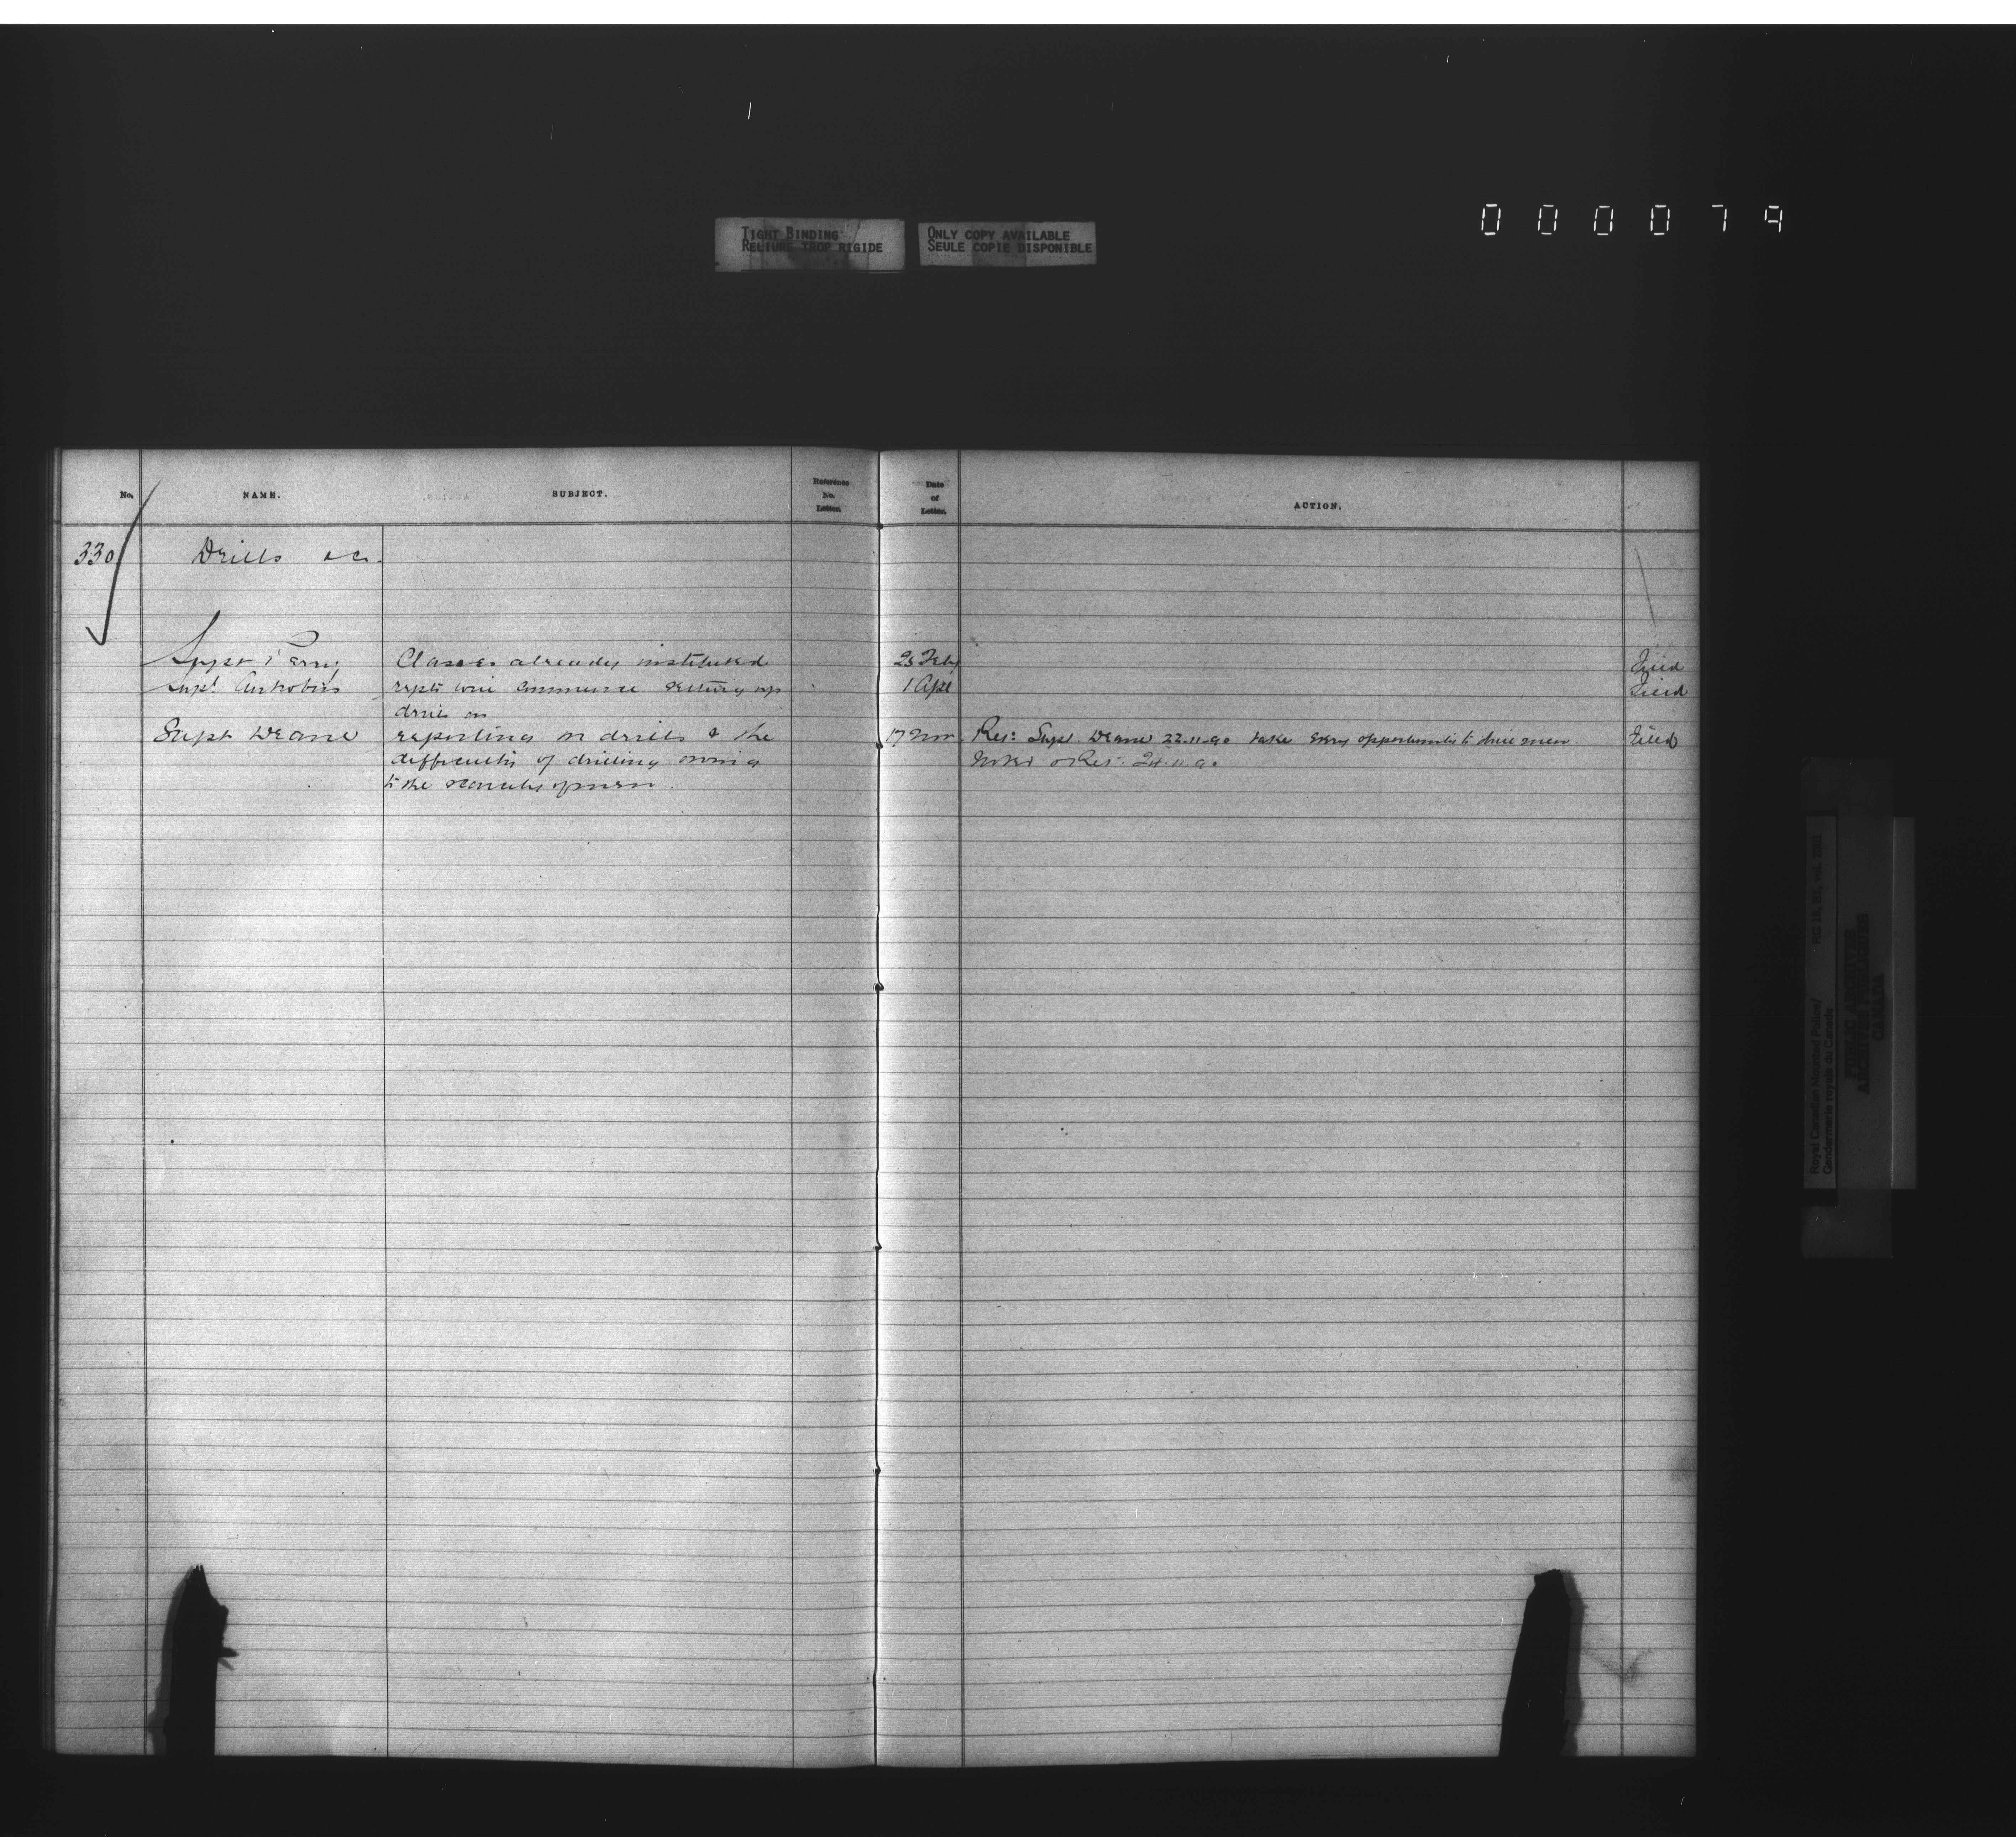 000079
TIGHT BINDING
RELIURE TROP RIGIDE
ONLY COPY AVAILABLE
SEULE COPIE DISPONIBLE
No. NAME. SUBJECT. Reference No. Letter. Date of Letter. ACTION.
330 Drills &c.
Supt Perry Classes already instituted 25 Feby Filed
Supt Antrobus repts will commence setting up 1 Apl Filed
drill on
Supt Deane reporting on drills & the 17 Nov. Res: Supt Deane 22.11.90 take every opportunity to drill men Filed
difficulty of drilling owing Noted & Ret: 24.11.90
to the scarcity of men.
Royal Canadian Mounted Police/
Gendarmerie royale du Canada
RG 18, B1, vol.
PUBLIC ARCHIVES
ARCHIVES PUBLIQUES
CANADA